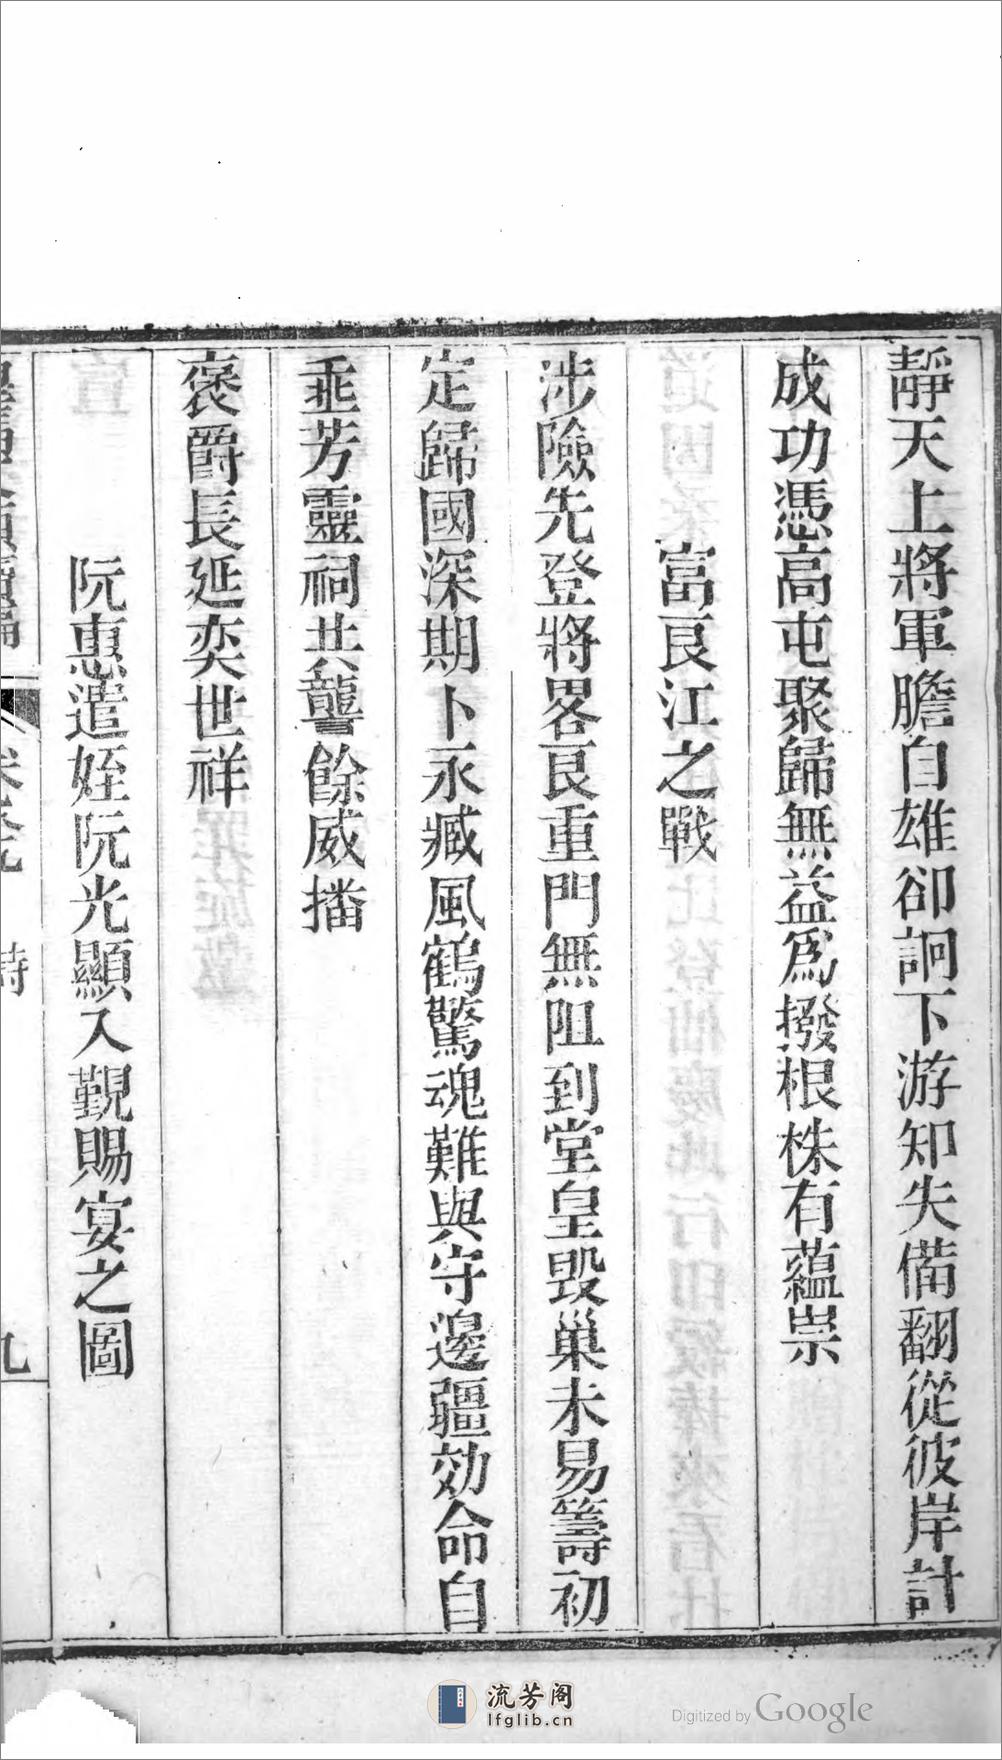 靜天上將軍膽自雄卻詗下游知失備翻從彼岸計
成功憑高屯聚歸無益爲撥根株有蘊崇
富良江之戰
涉險先登將畧良重門無阻到堂皇毁巢未易籌初
定歸國深期卜永臧風鶴驚魂難與守邊疆効命自
垂芳靈祠共讋餘威播
褒爵長延奕世祥
阮惠遣姪阮光顯入覲賜宴之圖
詩
九
流芳阁
lfglib.cn
Digitized by Google